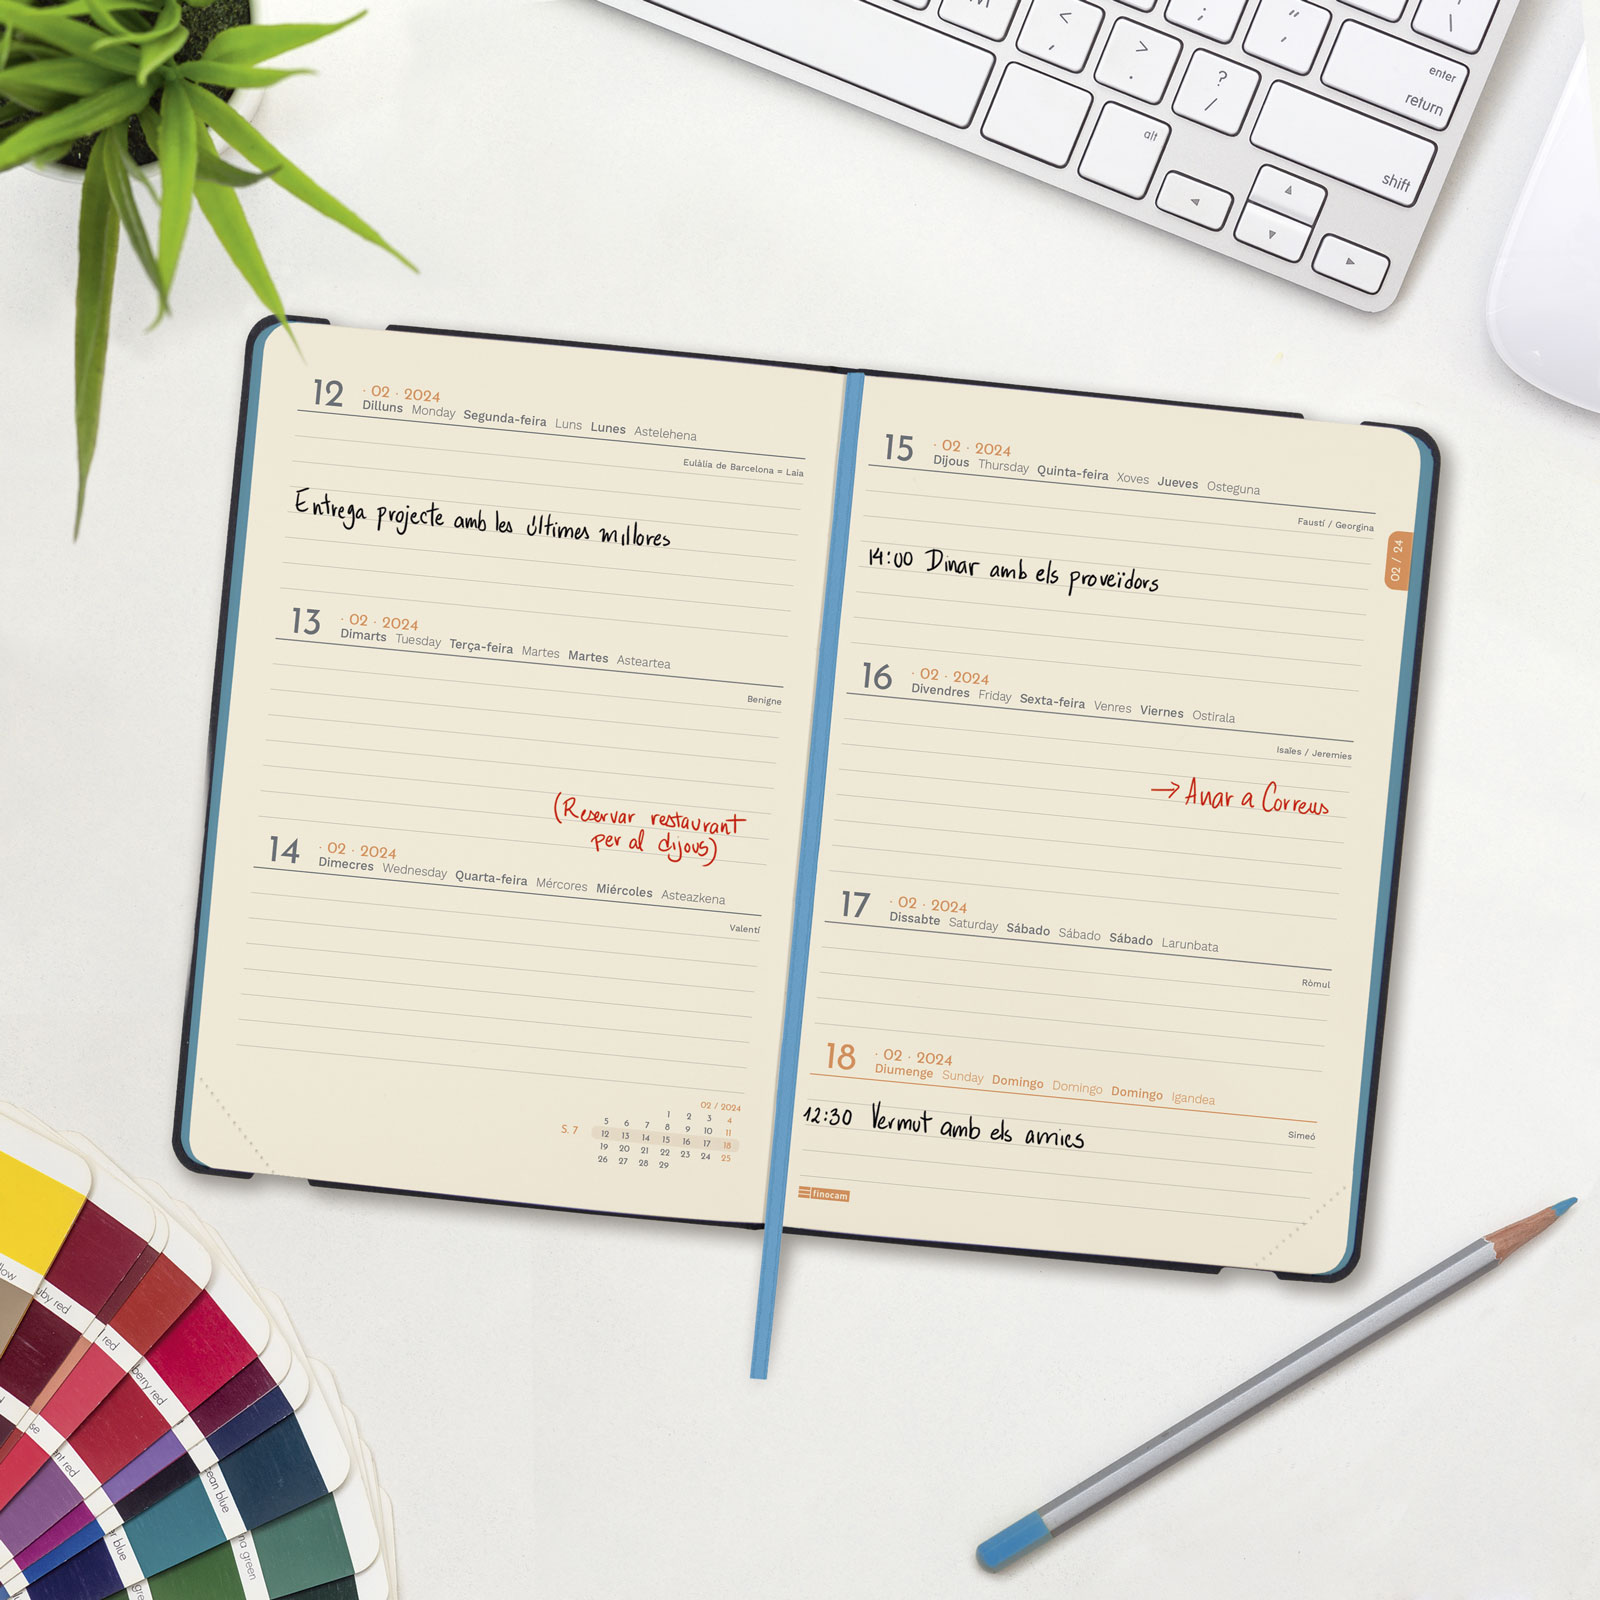 M
<
,
>
.
?
/
:
;
"
,
\
enter
return
alt
shift
12 · 02 · 2024
Dilluns Monday Segunda-feira Luns Lunes Astelehena
Eulàlia de Barcelona = Laia
Entrega projecte amb les últimes millores
13 · 02 · 2024
Dimarts Tuesday Terça-feira Martes Martes Asteartea
Benigne
(Reservar restaurant
per al dijous)
14 · 02 · 2024
Dimecres Wednesday Quarta-feira Mércores Miércoles Asteazkena
Valentí
02 / 2024
1 2 3 4
5 6 7 8 9 10 11
S. 7 12 13 14 15 16 17 18
19 20 21 22 23 24 25
26 27 28 29
15 · 02 · 2024
Dijous Thursday Quinta-feira Xoves Jueves Osteguna
Faustí / Georgina
02 / 24
14:00 Dinar amb els proveïdors
16 · 02 · 2024
Divendres Friday Sexta-feira Venres Viernes Ostirala
Isaïes / Jeremies
→ Anar a Correus
17 · 02 · 2024
Dissabte Saturday Sábado Sábado Sábado Larunbata
Ròmul
18 · 02 · 2024
Diumenge Sunday Domingo Domingo Domingo Igandea
Simeó
12:30 Vermut amb els amics
finocam
red
red
red
red
blue
blue
green